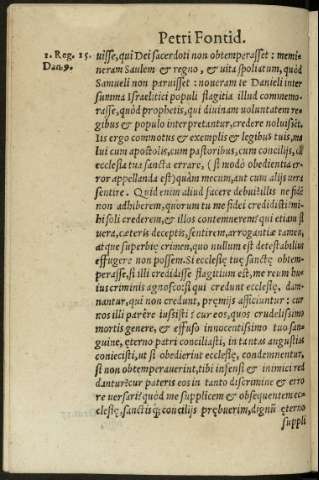 Petri Fontid.
1. Reg. 15.
Dan. 9.
uisse, qui Dei sacerdoti non obtemperasset: memi=
neram Saulem & regno, & uita spoliatum, quòd
Samueli non paruisset: noueram te Danieli inter
summa Israelitici populi flagitia illud commemo-
rasse, quòd prophetis, qui diuinam uoluntatem re=
gibus & populo interpretantur, credere noluisset.
Iis ergo commotus & exemplis & legibus tuis, ma
lui cum apostolis, cum pastoribus, cum concilijs, cū
ecclesia tua sancta errare, (si modò obedientia er=
ror appellanda est) quàm mecum, aut cum alijs uera
sentire. Quid enim aliud facere debui? illis ne fidē
non adhiberem, quorum tu me fidei credidisti? mi-
hi soli crederem, & illos contemnerem? qui etiam si
uera, cæteris deceptis, sentirem, arrogantiæ tamen,
atque superbię crimen, quo nullum est detestabilius
effugere non possem. Si ecclesię tuę sanctę obtem-
perasse, si illi credidisse flagitium est, me reum hu
ius criminis agnosco: si qui credunt ecclesię, dam-
nantur, qui non credunt, pręmijs afficiuntur: cur
nos illi parēre iussisti? cur eos, quos crudelissimo
mortis genere, & effuso innocentissimo tuo san-
guine, ęterno patri conciliasti, in tantas augustias
coniecisti, ut si obedierint ecclesię, condemnentur,
si non obtemperauerint, tibi infensi & inimici red
dantur? cur pateris eos in tanto discrimine & erro
re uersari? quòd me supplicem & obsequentem ec=
clesię, sanctisq́; concilijs prębuerim, dignū ęterno
suppli